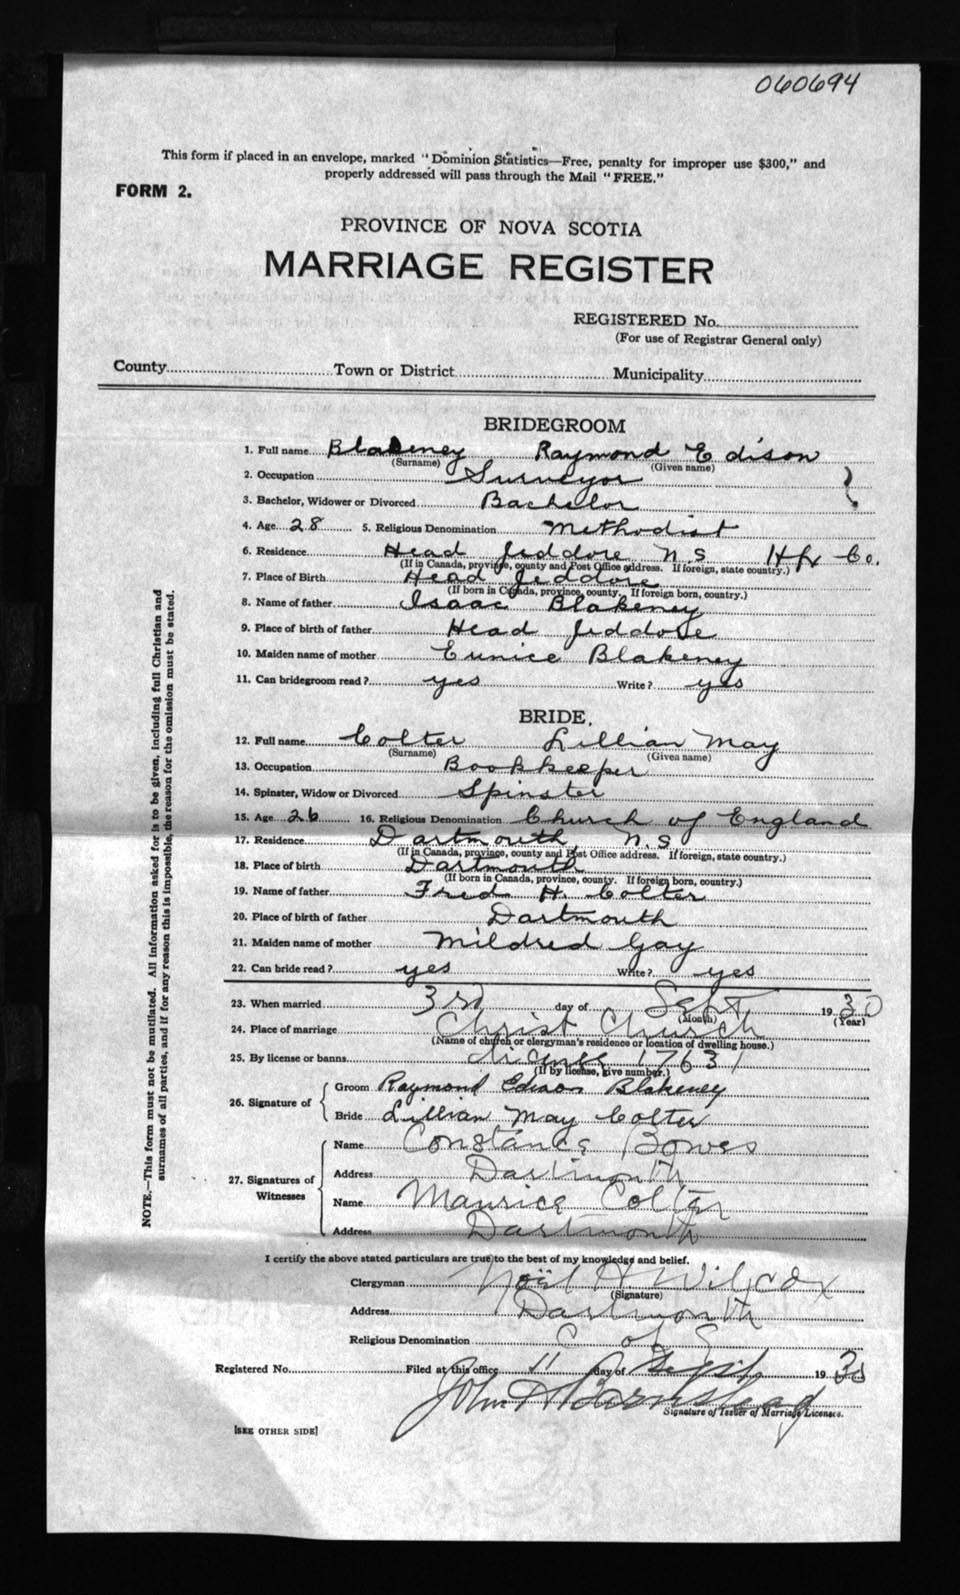 060694
This form if placed in an envelope, marked "Dominion Statistics—Free, penalty for improper use $300," and
properly addressed will pass through the Mail "FREE."
FORM 2.
PROVINCE OF NOVA SCOTIA
MARRIAGE REGISTER
REGISTERED No.
(For use of Registrar General only)
County Town or District Municipality
BRIDEGROOM
1. Full name Blakeney Raymond Edison
(Surname) (Given name)
2. Occupation Surveyor
3. Bachelor, Widower or Divorced Bachelor
4. Age 28 5. Religious Denomination Methodist
6. Residence Head Jeddore N.S Hfx Co.
(If in Canada, province, county and Post Office address. If foreign, state country.)
7. Place of Birth Head Jeddore
(If born in Canada, province, county. If foreign born, country.)
8. Name of father Isaac Blakeney
9. Place of birth of father Head Jeddore
10. Maiden name of mother Eunice Blakeney
11. Can bridegroom read? yes Write? yes
BRIDE.
12. Full name Colter Lillian May
(Surname) (Given name)
13. Occupation Bookkeeper
14. Spinster, Widow or Divorced Spinster
15. Age 26 16. Religious Denomination Church of England
17. Residence Dartmouth, N.S
(If in Canada, province, county and Post Office address. If foreign, state country.)
18. Place of birth Dartmouth
(If born in Canada, province, county. If foreign born, country.)
19. Name of father Fred H. Colter
20. Place of birth of father Dartmouth
21. Maiden name of mother Mildred Gay
22. Can bride read? yes Write? yes
23. When married 3rd day of Sept 1930
(Month) (Year)
24. Place of marriage Christ Church
(Name of church or clergyman's residence or location of dwelling house.)
25. By license or banns License 1763
(If by license, give number.)
26. Signature of Groom Raymond Edison Blakeney
Bride Lillian May Colter
27. Signatures of Witnesses Name Constance Bowes
Address Dartmouth
Name Maurice Colter
Address Dartmouth
I certify the above stated particulars are true to the best of my knowledge and belief.
Clergyman Noel H Wilcox
(Signature)
Address Dartmouth
Religious Denomination C of E
Registered No. Filed at this office 11 day of Sept 1930
John A Barnstead
Signature of Issuer of Marriage Licenses.
[SEE OTHER SIDE]
NOTE.—This form must not be mutilated. All information asked for is to be given, including full Christian and
surnames of all parties, and if for any reason this is impossible, the reason for the omission must be stated.